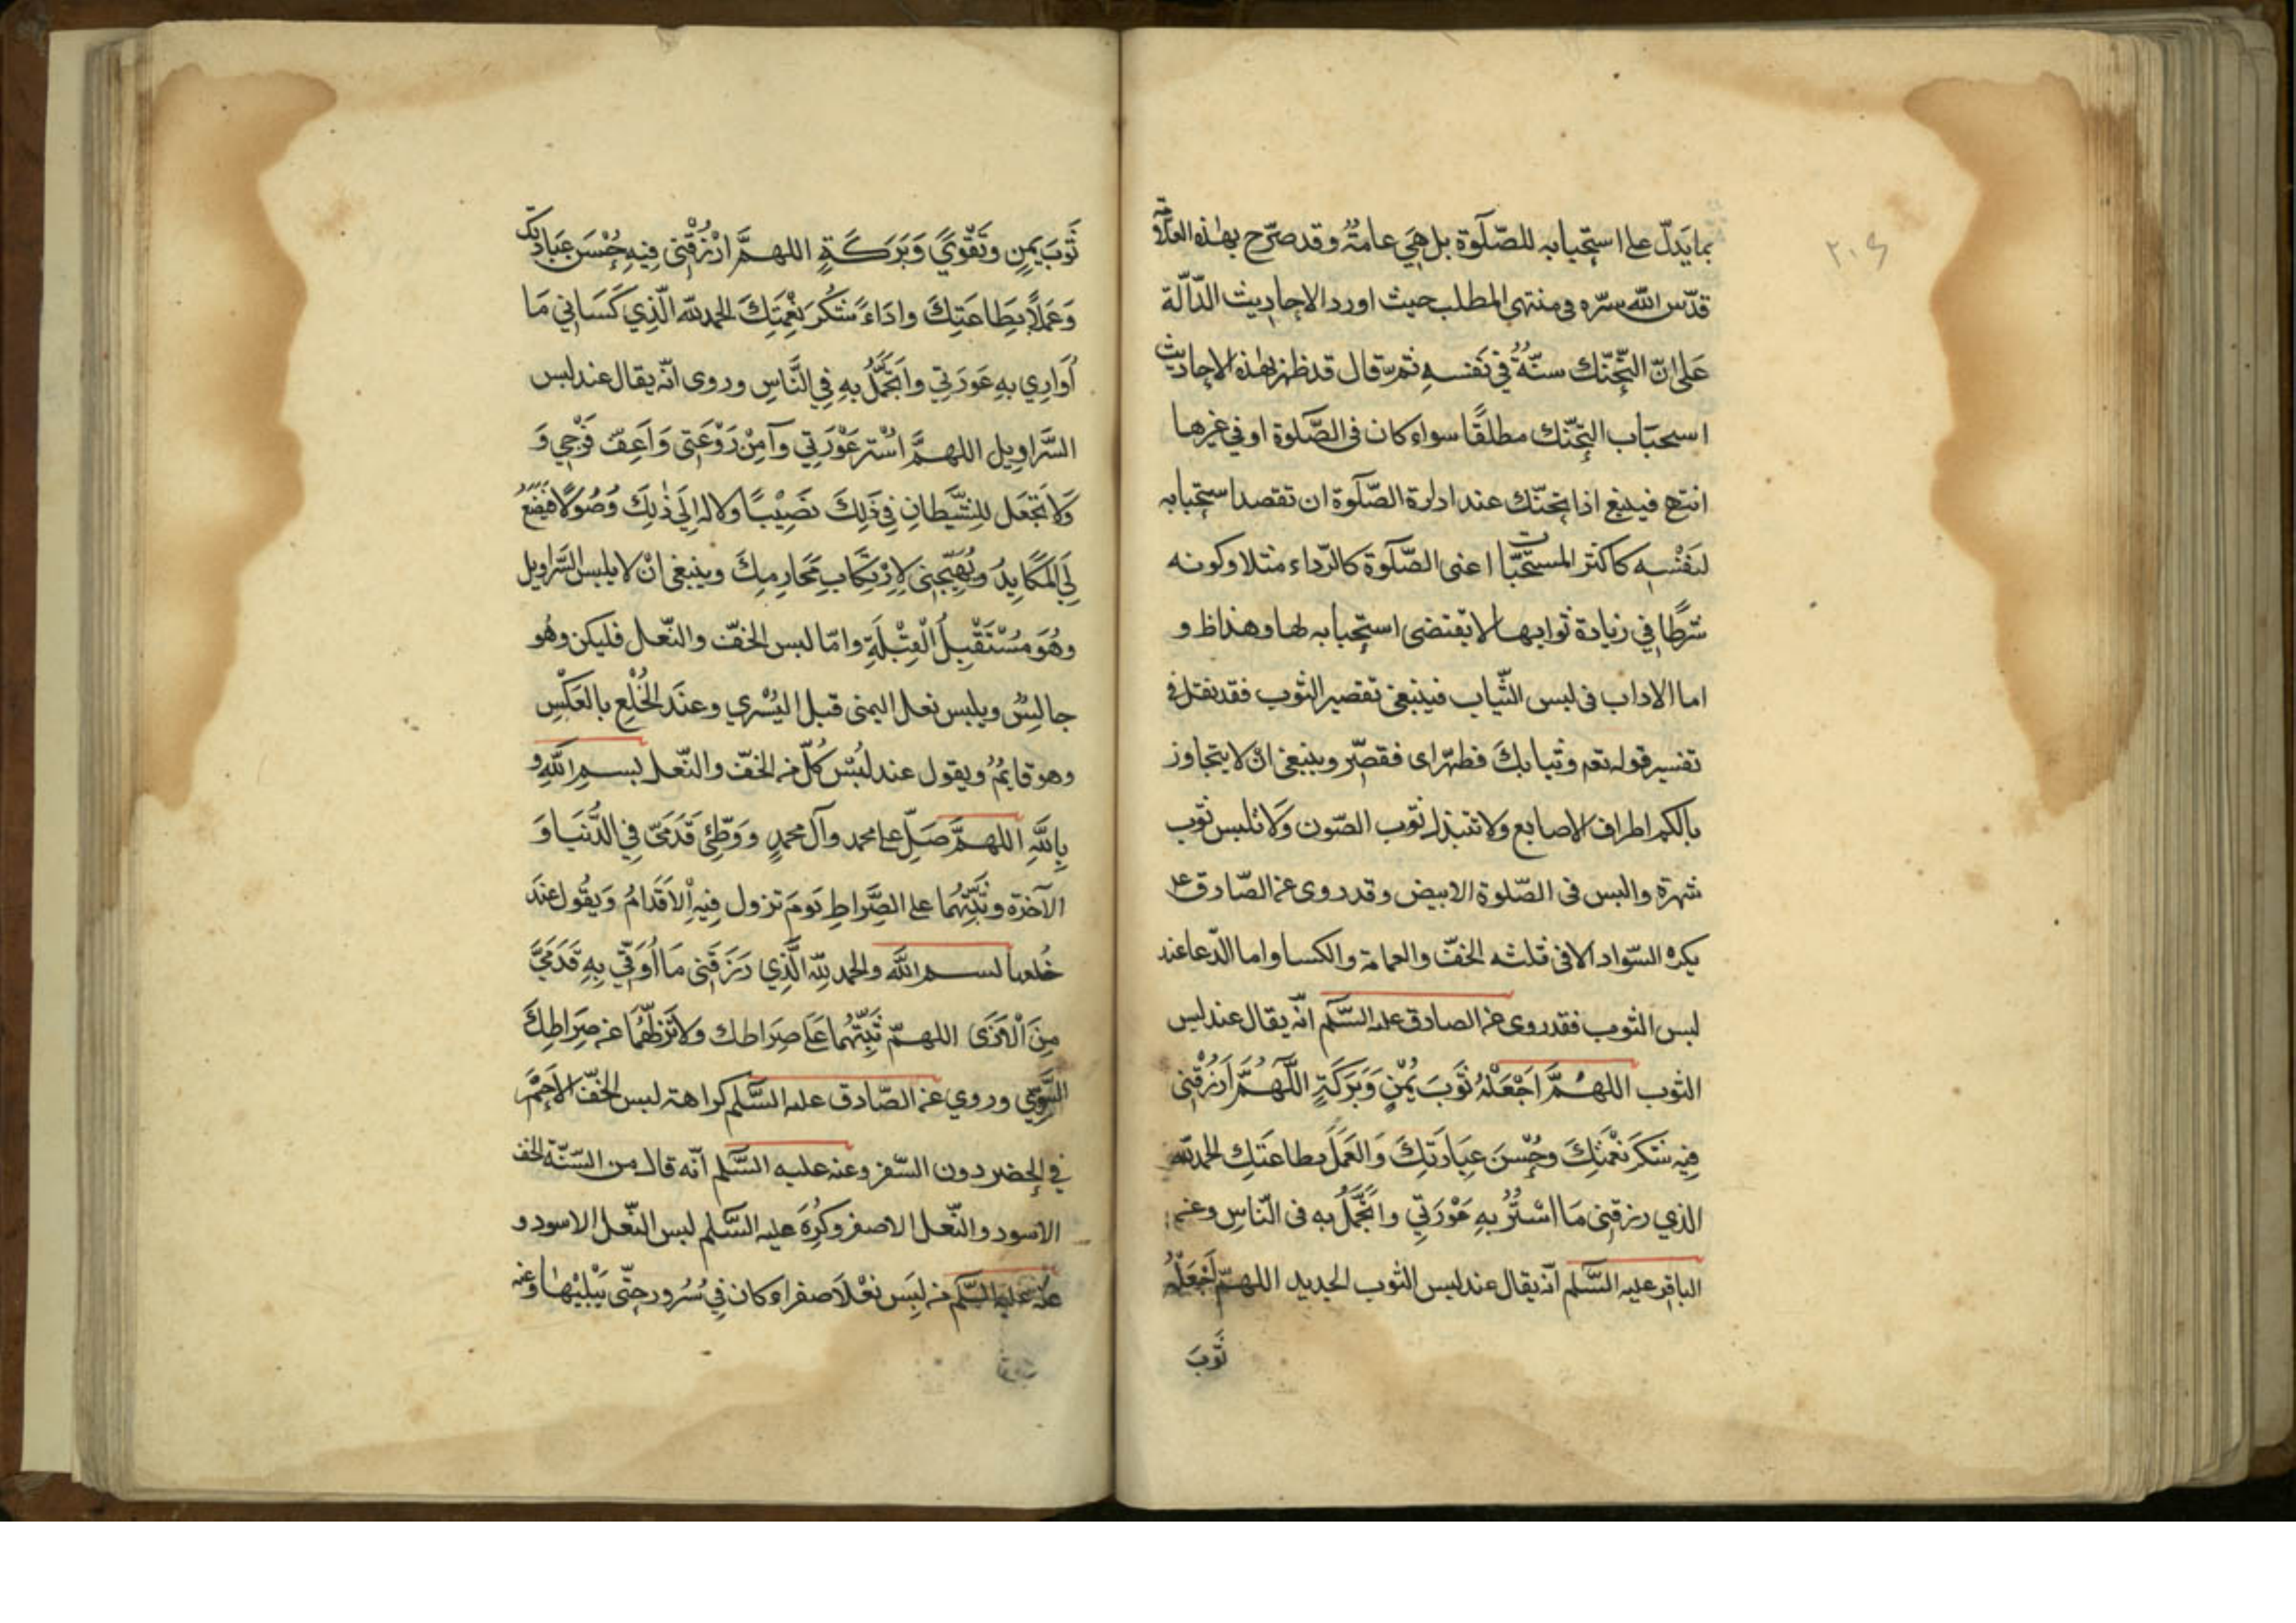 ٢٠٤
بما يَدلّ على استحبابه للصّلوة بل هِيَ عامةٌ وقد صرّح بهذه العلامة
قدّس الله سرّه فى منتهى المطلب حيث اورد الاحاديث الدّالّة
عَلى انّ التّحنّك سنّةٌ في نَفسهِ ثم قال قد ظهر بهذه الاحاديث
استحبَاب التحنّك مطلقًا سواء كان فى الصّلوة او في غيرها
انتهى فينبغى اذا تحنّك عند ارادة الصّلوة ان تقصد استحبابه
لنَفْسِه كاكثر المستحبّات اعنى الصّلوة كالرّداء مثلا وكونه
شرطًا في زيادة ثوابها لا يقتضى استحبابه لها وهذا ظ و
اما الاداب فى لبس الثّياب فينبغى تقصير الثوب فقد نقل فى
تفسير قوله تعم وثيابكَ فطهّر اى فقصّر وينبغى انْ لا يتجاوز
بالكم اطراف الاصابع ولا تبتذل ثوب الصّون وَلا تلبس ثوب
شهرة والبس فى الصّلوة الابيض وقد روى عن الصّادق ع
يكره السّواد الا فى ثلثه الخفّ والعمامة والكسا واما الدّعا عند
لبس الثوب فقد روى عن الصادق عليه السَّلم انّه يقال عند لبس
الثوب اللهُمَّ اجْعَلْهُ ثَوبَ يُمْنٍ وَبَرَكَةٍ اللَّهُمَّ ارْزُقْنِى
فِيهِ شكَرَ نعْمَتِكَ وحُسْنَ عِبَادَتِكَ وَالعَمَلَ بطاعَتِك الحمد للّه
الذي رزقنِى مَا اسْتُرُ بِهِ عَوْرَتِي واتَجَّمَلُ به فى النّاسِ وعن
الباقر عليه السَّلم انّه يقال عند لبس الثوب الجديد اللهمّ اجْعَلْهُ
ثَوبَ
ثَوبَ يمنٍ وتَقْوَيً وَبَرَكَةٍ اللهمَّ ارْزُقْنِى فِيهِ حُسْنَ عِبَادتِك
وَعَمَلاً بِطَاعَتِكَ وادَاءَ شكُر نِعْمَتِكَ الحمد للّه الَّذِي كَسَانِي مَا
اُوَارِي بِهِ عَورَتِي واتَجَّمَلُ بِهِ فِي النَّاسِ وروى انّه يقال عند لبس
السَّراوِيل اللهمَّ اسْتر عَوْرَتِي وآمِنْ رَوْعَتِى وَاَعِفّ فَرْجِي وَ
وَلا تَجْعَل للشَّيطَانِ فِي ذَلِكَ نصَيْبًا ولا له اِلَى ذلِكَ وُصُولًا فيَضَعَ
لِيَ المَكَايِدُ ويُهَيِّجنِى لاِرْتِكَابِ مَحَارِمِكَ وينبغى انْ لا يلبس السَّراويل
وهُوَ مُسْتَقْبِلُ الْقِبْلَةِ وامّا لبس الخفّ والنّعل فليكن وهُو
جالسٌ ويلبس نعل اليمنى قبل اليُسْري وعنَد الخُلعِ بالعَكْسِ
وهو قايمٌ ويقول عند لبْس كُلّ من الخفّ والنّعل بسمِ اللهِ و
بِاللَّهِ اللهمَّ صَلِّ على محمد وآل محمدٍ وَوَطِّئ قَدَمَيّ فِي الدُّنيَا وَ
الآخرة وثَبّتْهُما على الصِّراطِ يَومَ تزول فِيهِ الاَقدَامُ وَيقُول عندَ
خُلعها بسم اللَّه والحمد للّه الَّذِي رَزَقَنِى مَا اُوَقّي بِهِ قَدَمَيَّ
مِنَ الْاَذَى اللهمّ ثَبّتْهُما عَلَى صِرَاطك وَلا تَزلّهُمَا عن صِرَاطِكَ
السَّوِيّ وروي عن الصّادق عليه السَّلم كراهة لبس الخفّ الاحْمَر
فِي الحضر دون السّفر وعنه عليه السَّلم انّه قال من السّنّة الخف
الاسود والنّعل الاصفر وكُرِهَ عليه السَّلم لبس النّعل الاسود و
عنه عليه السَّلم من لبَسَ نعْلاً صفراء كان فِي سُرُور حتّى يَبْلِيْها وعنه